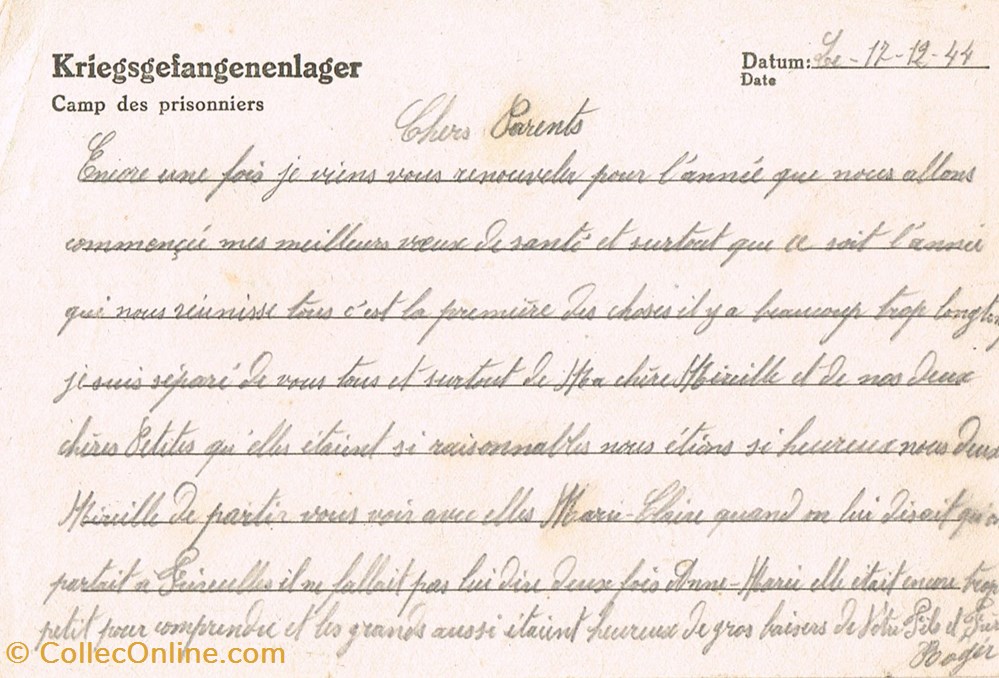 Kriegsgefangenenlager
Camp des prisonniers
Datum: Le - 17-12-44
Date
Chers Parents
Encore une fois je viens vous renouveler pour l'année que nous allons
commençée mes meilleurs vœux de santé et surtout que ce soit l'année
qui nous réunisse tous c'est la première des choses il y a beaucoup trop longtemps
je suis séparé de vous tous et surtout de Ma chère Mireille et de nos deux
chères Petites qu'elles étaient si raisonnables nous étions si heureux nous deux
Mireille de partir vous voir avec elles Marie-Claire quand on lui disait qu'on
partait a il ne fallait pas lui dire deux fois Anne-Marie elle était encore trop
petit pour comprendre et les grands aussi étaient heureux de gros baisers de Votre Fils et
Roger
© CollecOnline.com